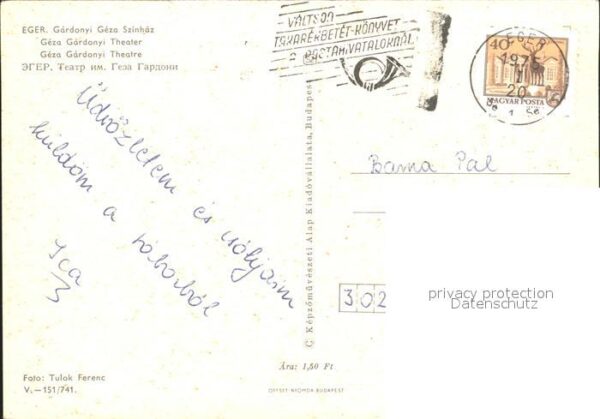 EGER. Gárdonyi Géza Színház
Géza Gárdonyi Theater
Géza Gárdonyi Theatre
ЭГЕР. Театр им. Геза Гардони
VÁLTSON
TAKARÉKBETÉT-KÖNYVET
A POSTAHIVATALOKNÁL
EGER
1976
20
40
MAGYAR POSTA
Üdvözletem és
küldöm a táborból
Ica
Barna Pál
302
© Képzőművészeti Alap Kiadóvállalata, Budapest
Ára: 1,50 Ft
Foto: Tulok Ferenc
V.—151/741.
OFFSET-NYOMDA BUDAPEST
privacy protection
Datenschutz